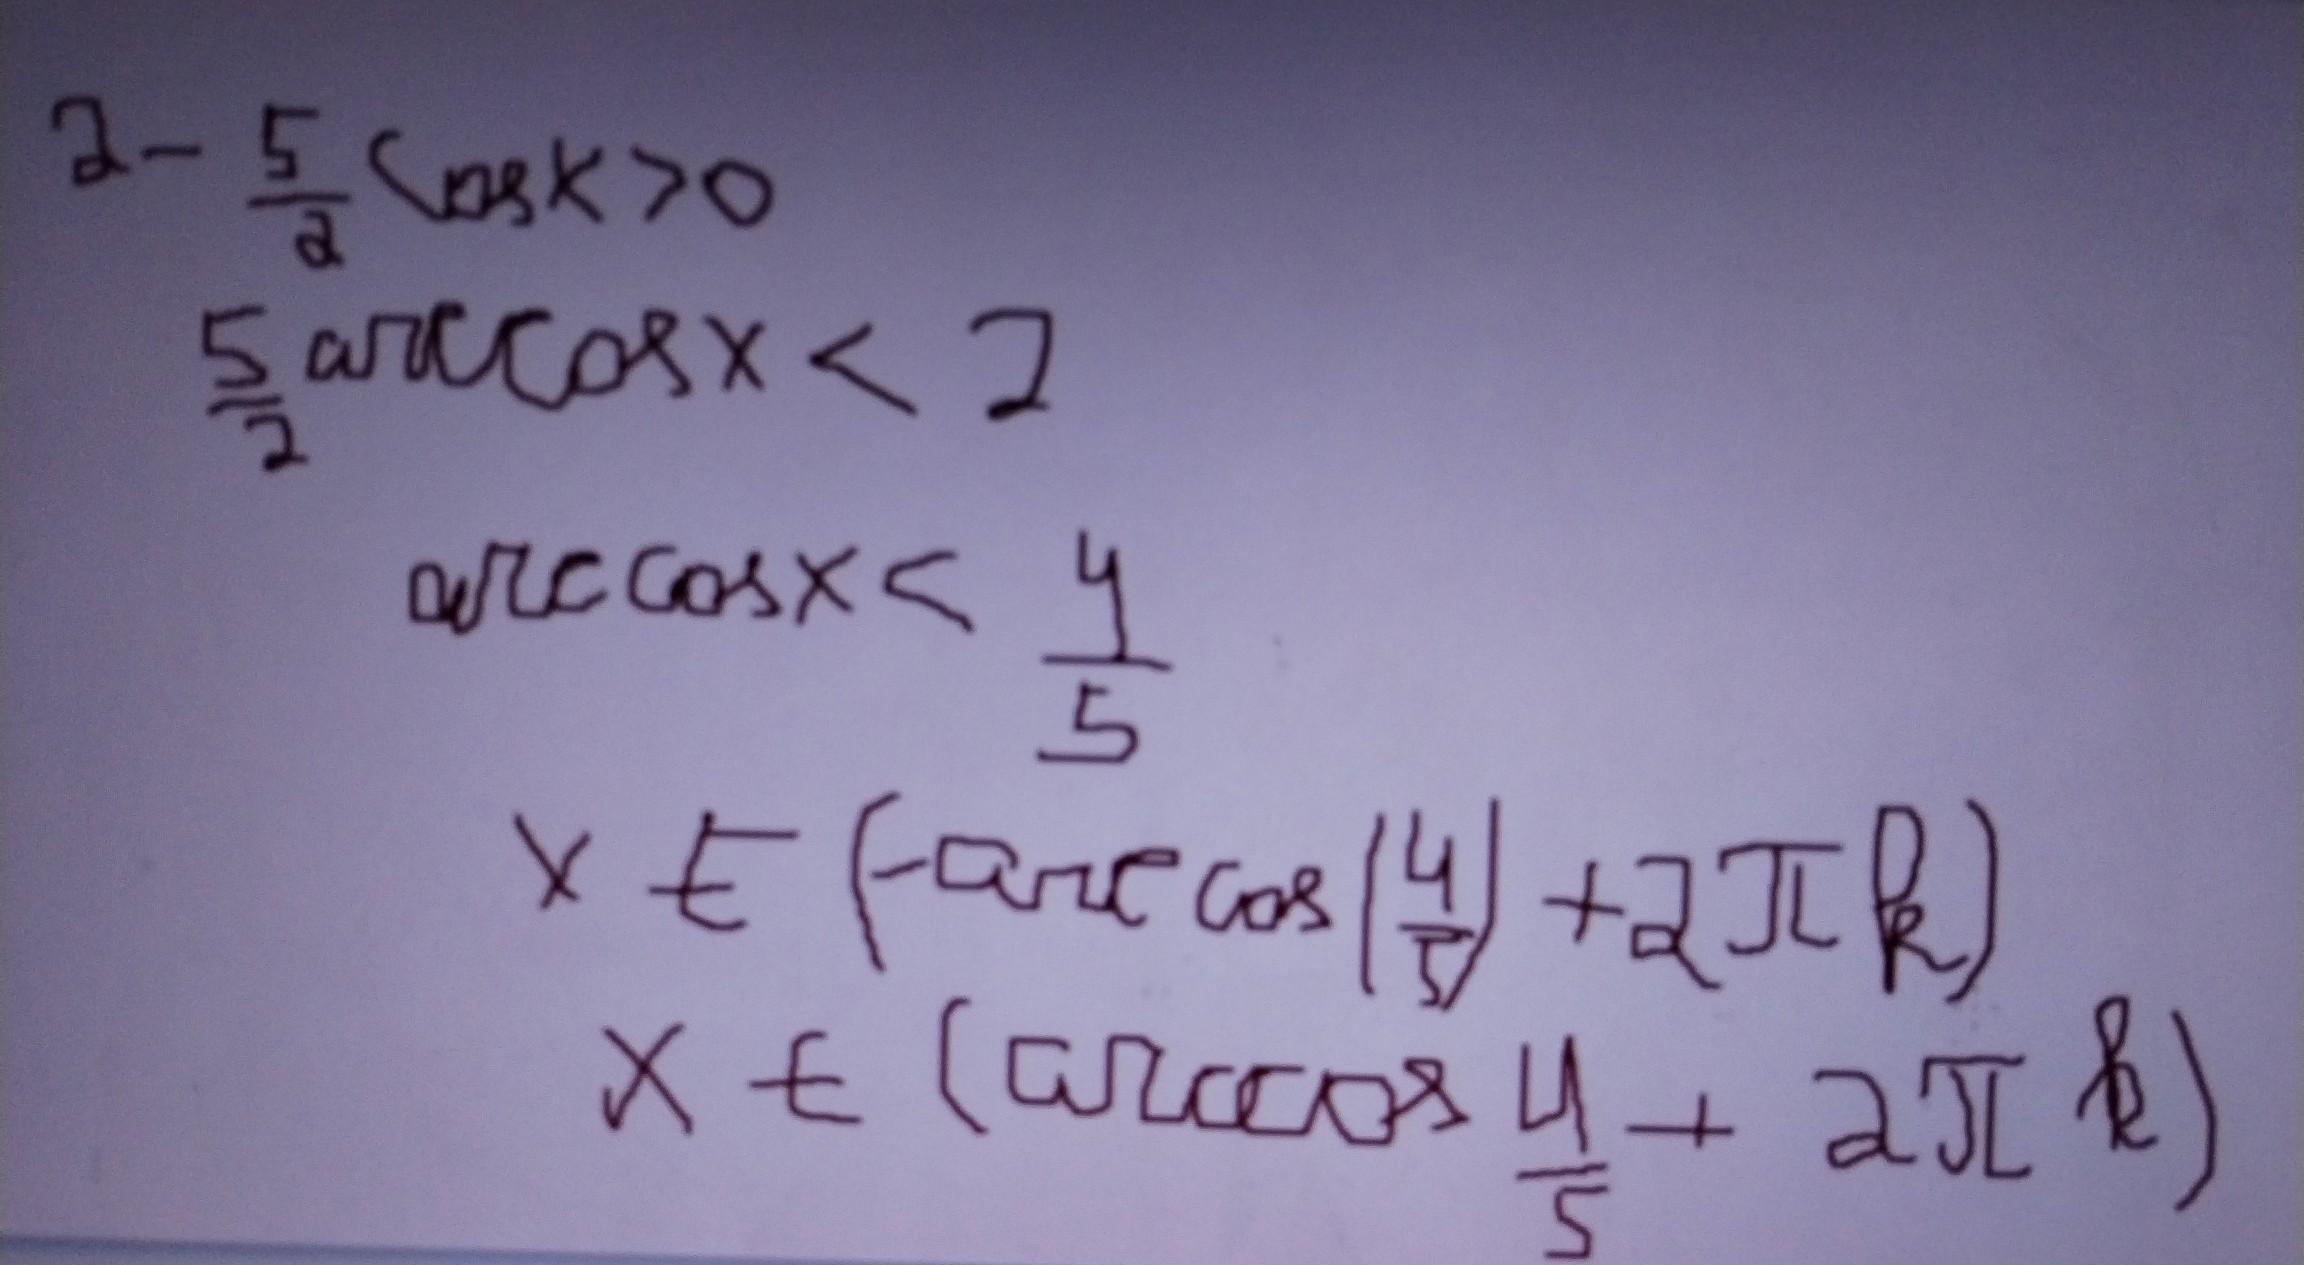 2 - 5/2 cosx > 0
5/2 arccosx < 2
arccosx < 4/5
x ∈ (-arccos(4/5) + 2πk)
x ∈ (arccos 4/5 + 2πk)